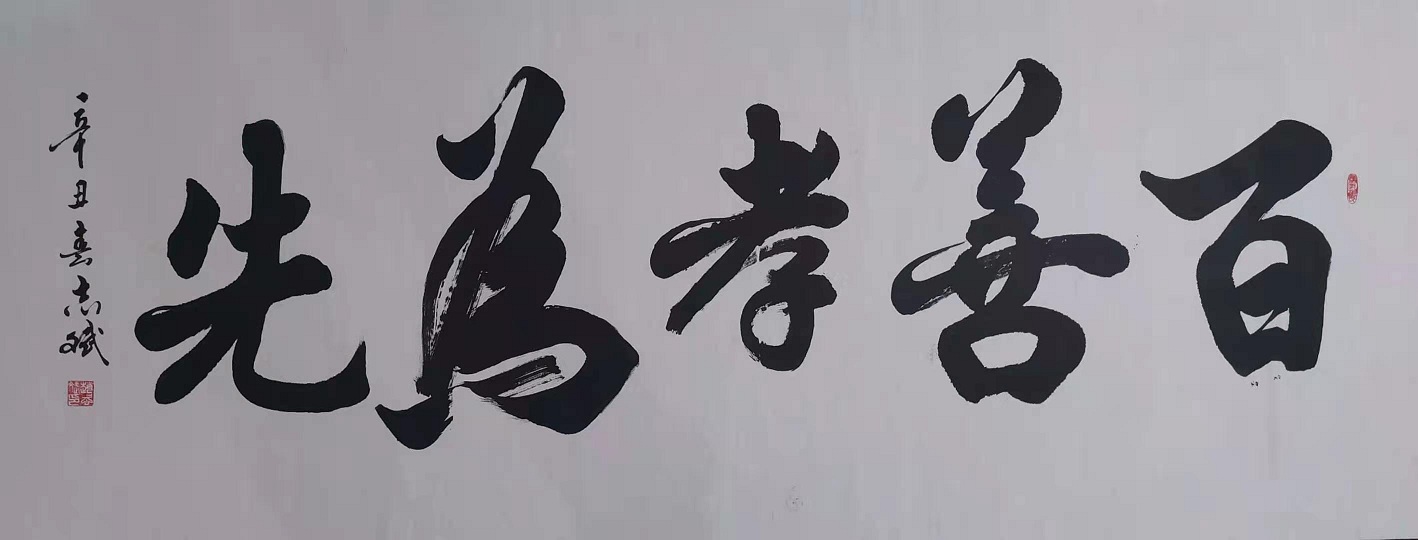 百善孝為先
辛丑春志斌